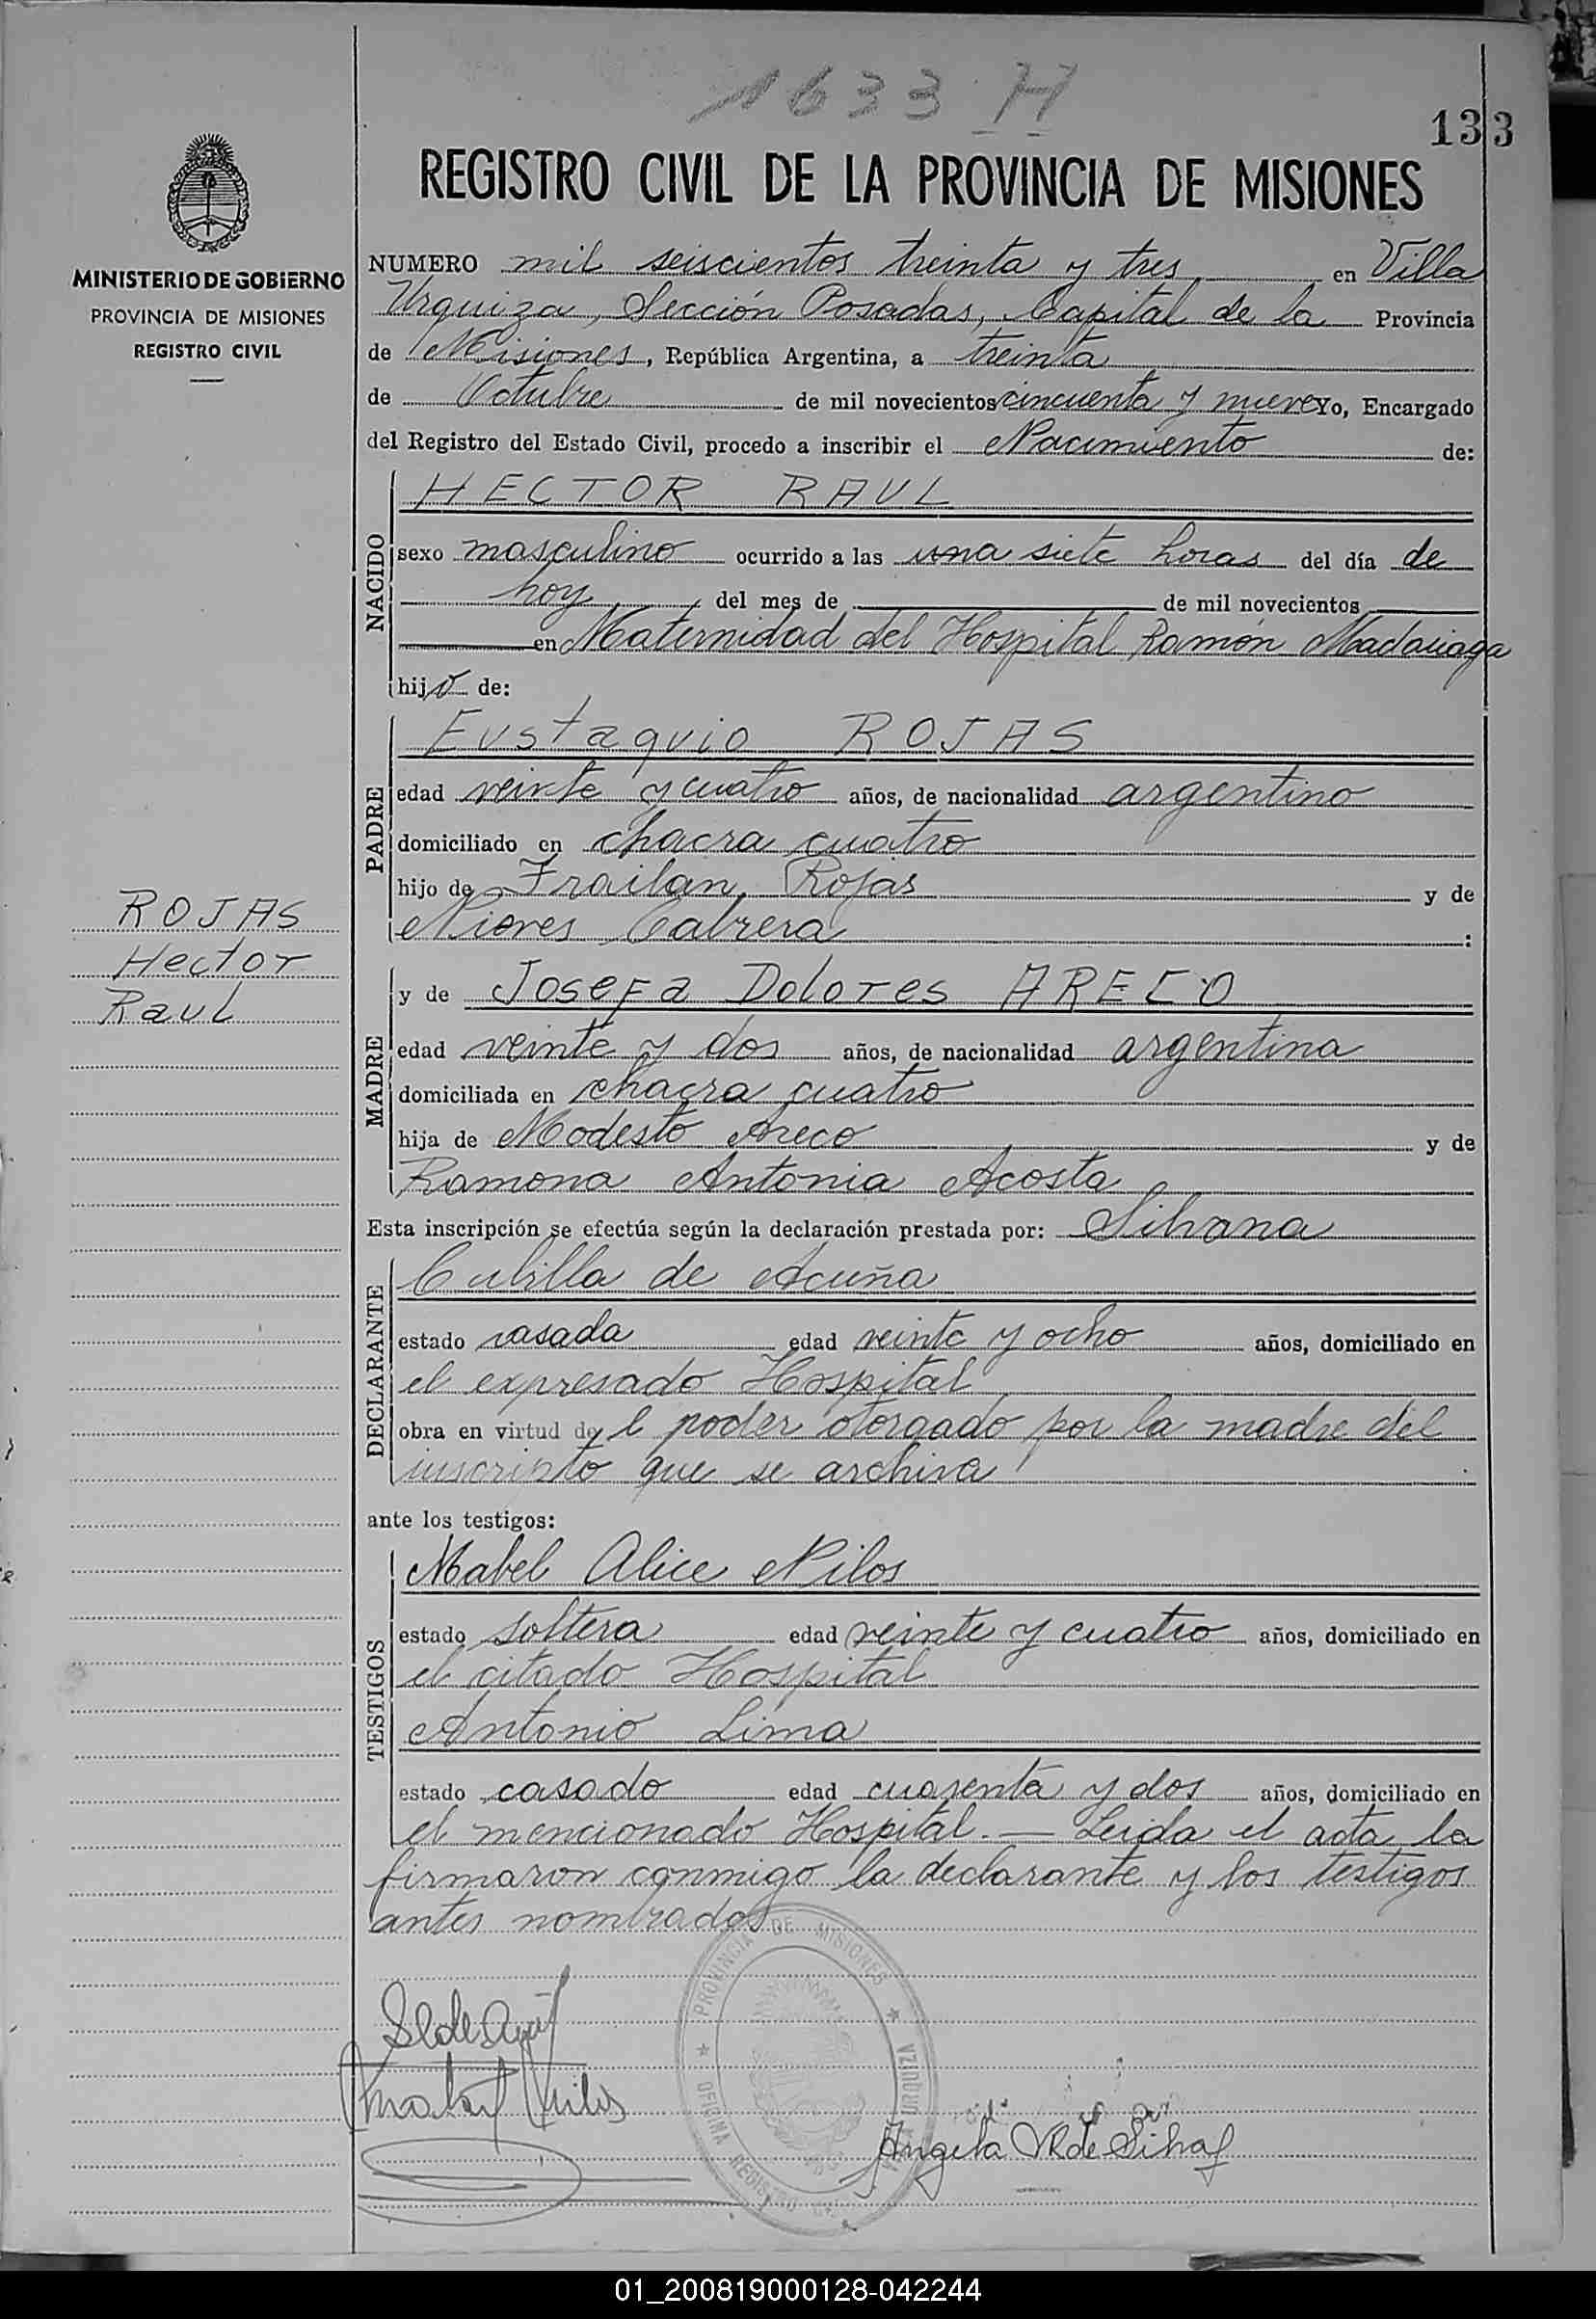 1633 H
133
REGISTRO CIVIL DE LA PROVINCIA DE MISIONES
MINISTERIO DE GOBIERNO
PROVINCIA DE MISIONES
REGISTRO CIVIL
NUMERO mil seiscientos treinta y tres en Villa
Urquiza, Sección Posadas, Capital de la Provincia
de Misiones, República Argentina, a treinta
de Octubre de mil novecientos cincuenta y nueve Yo, Encargado
del Registro del Estado Civil, procedo a inscribir el Nacimiento de:
NACIDO
HECTOR RAUL
sexo masculino ocurrido a las una siete horas del día de
hoy del mes de de mil novecientos
en Maternidad del Hospital Ramón Madariaga
hijo de:
PADRE
Eustaquio ROJAS
edad veinte y cuatro años, de nacionalidad argentino
domiciliado en chacra cuatro
hijo de Frailan Rojas y de
Nieves Cabrera :
ROJAS
Hector
Raul
MADRE
y de Josefa Dolores ARECO
edad veinte y dos años, de nacionalidad argentina
domiciliada en chacra cuatro
hija de Modesto Areco y de
Ramona Antonia Acosta
Esta inscripción se efectúa según la declaración prestada por: Silvana
DECLARANTE
Cubilla de Acuña
estado casada edad veinte y ocho años, domiciliado en
el expresado Hospital
obra en virtud del poder otorgado por la madre del
inscripto que se archiva
ante los testigos:
TESTIGOS
Mabel Alice Nilos
estado soltera edad veinte y cuatro años, domiciliado en
el citado Hospital
Antonio Lima
estado casado edad cuarenta y dos años, domiciliado en
el mencionado Hospital. — Leida el acta la
firmaron conmigo la declarante y los testigos
antes nombrados
PROVINCIA DE MISIONES
OFICINA REGISTRO
URQUIZA
Angela de
01_200819000128-042244